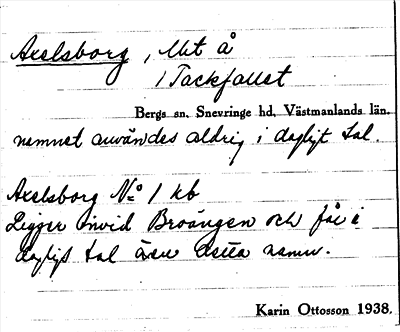 Axelsborg, Utt å
1 Tackfallet
Bergs sn. Snevringe hd. Västmanlands län.
namnet användes aldrig i dagligt tal.
Axelsborg No 1 kb
Ligger invid Broängen och får i
dagligt tal även detta namn.
Karin Ottosson 1938.